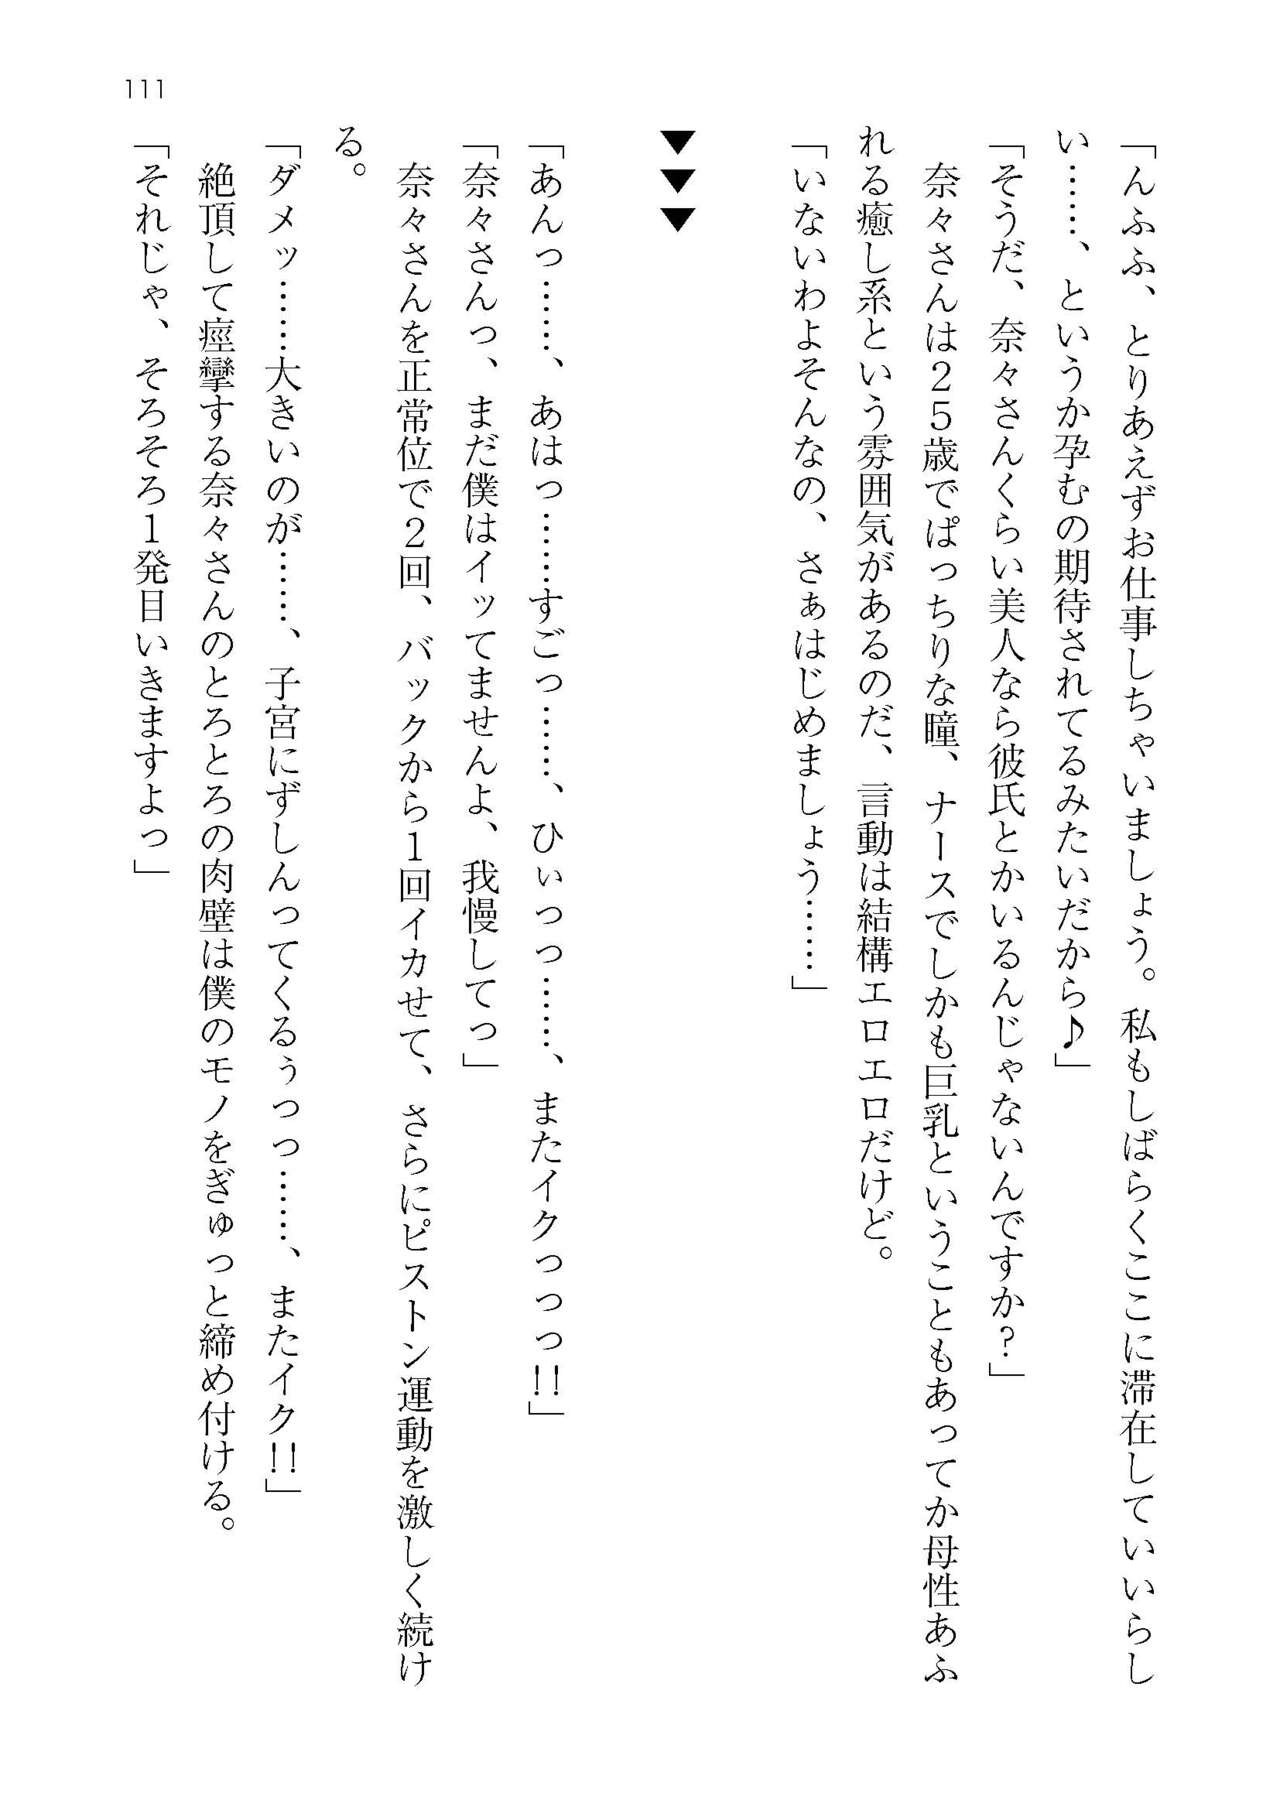 「んふふ、とりあえずお仕事しちゃいましょう。私もしばらくここに滞在していいらし
い……、というか孕むの期待されてるみたいだから♪」
「そうだ、奈々さんくらい美人なら彼氏とかいるんじゃないんですか？」
　奈々さんは２５歳でぱっちりな瞳、ナースでしかも巨乳ということもあってか母性あふ
れる癒し系という雰囲気があるのだ、言動は結構エロエロだけど。
「いないわよそんなの、さぁはじめましょう……」
▼▼▼
「あんっ……、あはっ……すごっ……、ひぃっっ……、またイクっっっ!!」
「奈々さんっ、まだ僕はイッてませんよ、我慢してっ」
　奈々さんを正常位で２回、バックから１回イカせて、さらにピストン運動を激しく続け
る。
「ダメッ……大きいのが……、子宮にずしんってくるぅっっ……、またイク!!」
　絶頂して痙攣する奈々さんのとろとろの肉壁は僕のモノをぎゅっと締め付ける。
「それじゃ、そろそろ１発目いきますよっ」
111